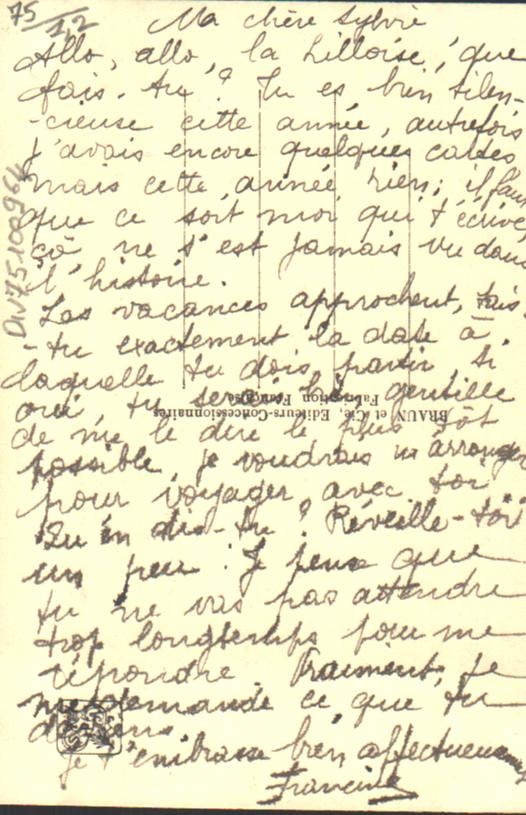 75
1,2
Ma chère Sylvie
Allo, allo, la Lilloise, que
fais-tu? Tu es bien silen-
-cieuse cette année, autrefois
j'avais encore quelques cartes
mais cette année rien; il faut
que ce soit moi qui t'écrive,
çà ne s'est jamais vu dans
l'histoire.
Les vacances approchent, sais-
-tu exactement la date à
laquelle tu dois partir, si
oui, tu serais bien gentille
de me le dire le plus tôt
possible, je voudrais m'arranger
pour voyager avec toi.
Qu'en dis-tu? Réveille-toi
un peu! Je pense que
tu ne vas pas attendre
trop longtemps pour me
répondre. Vraiment, je
me demande ce que tu
deviens.
Je t'embrasse bien affectueusement
Francine
BRAUN et Cie, Editeurs-Concessionnaires
Fabrication Française